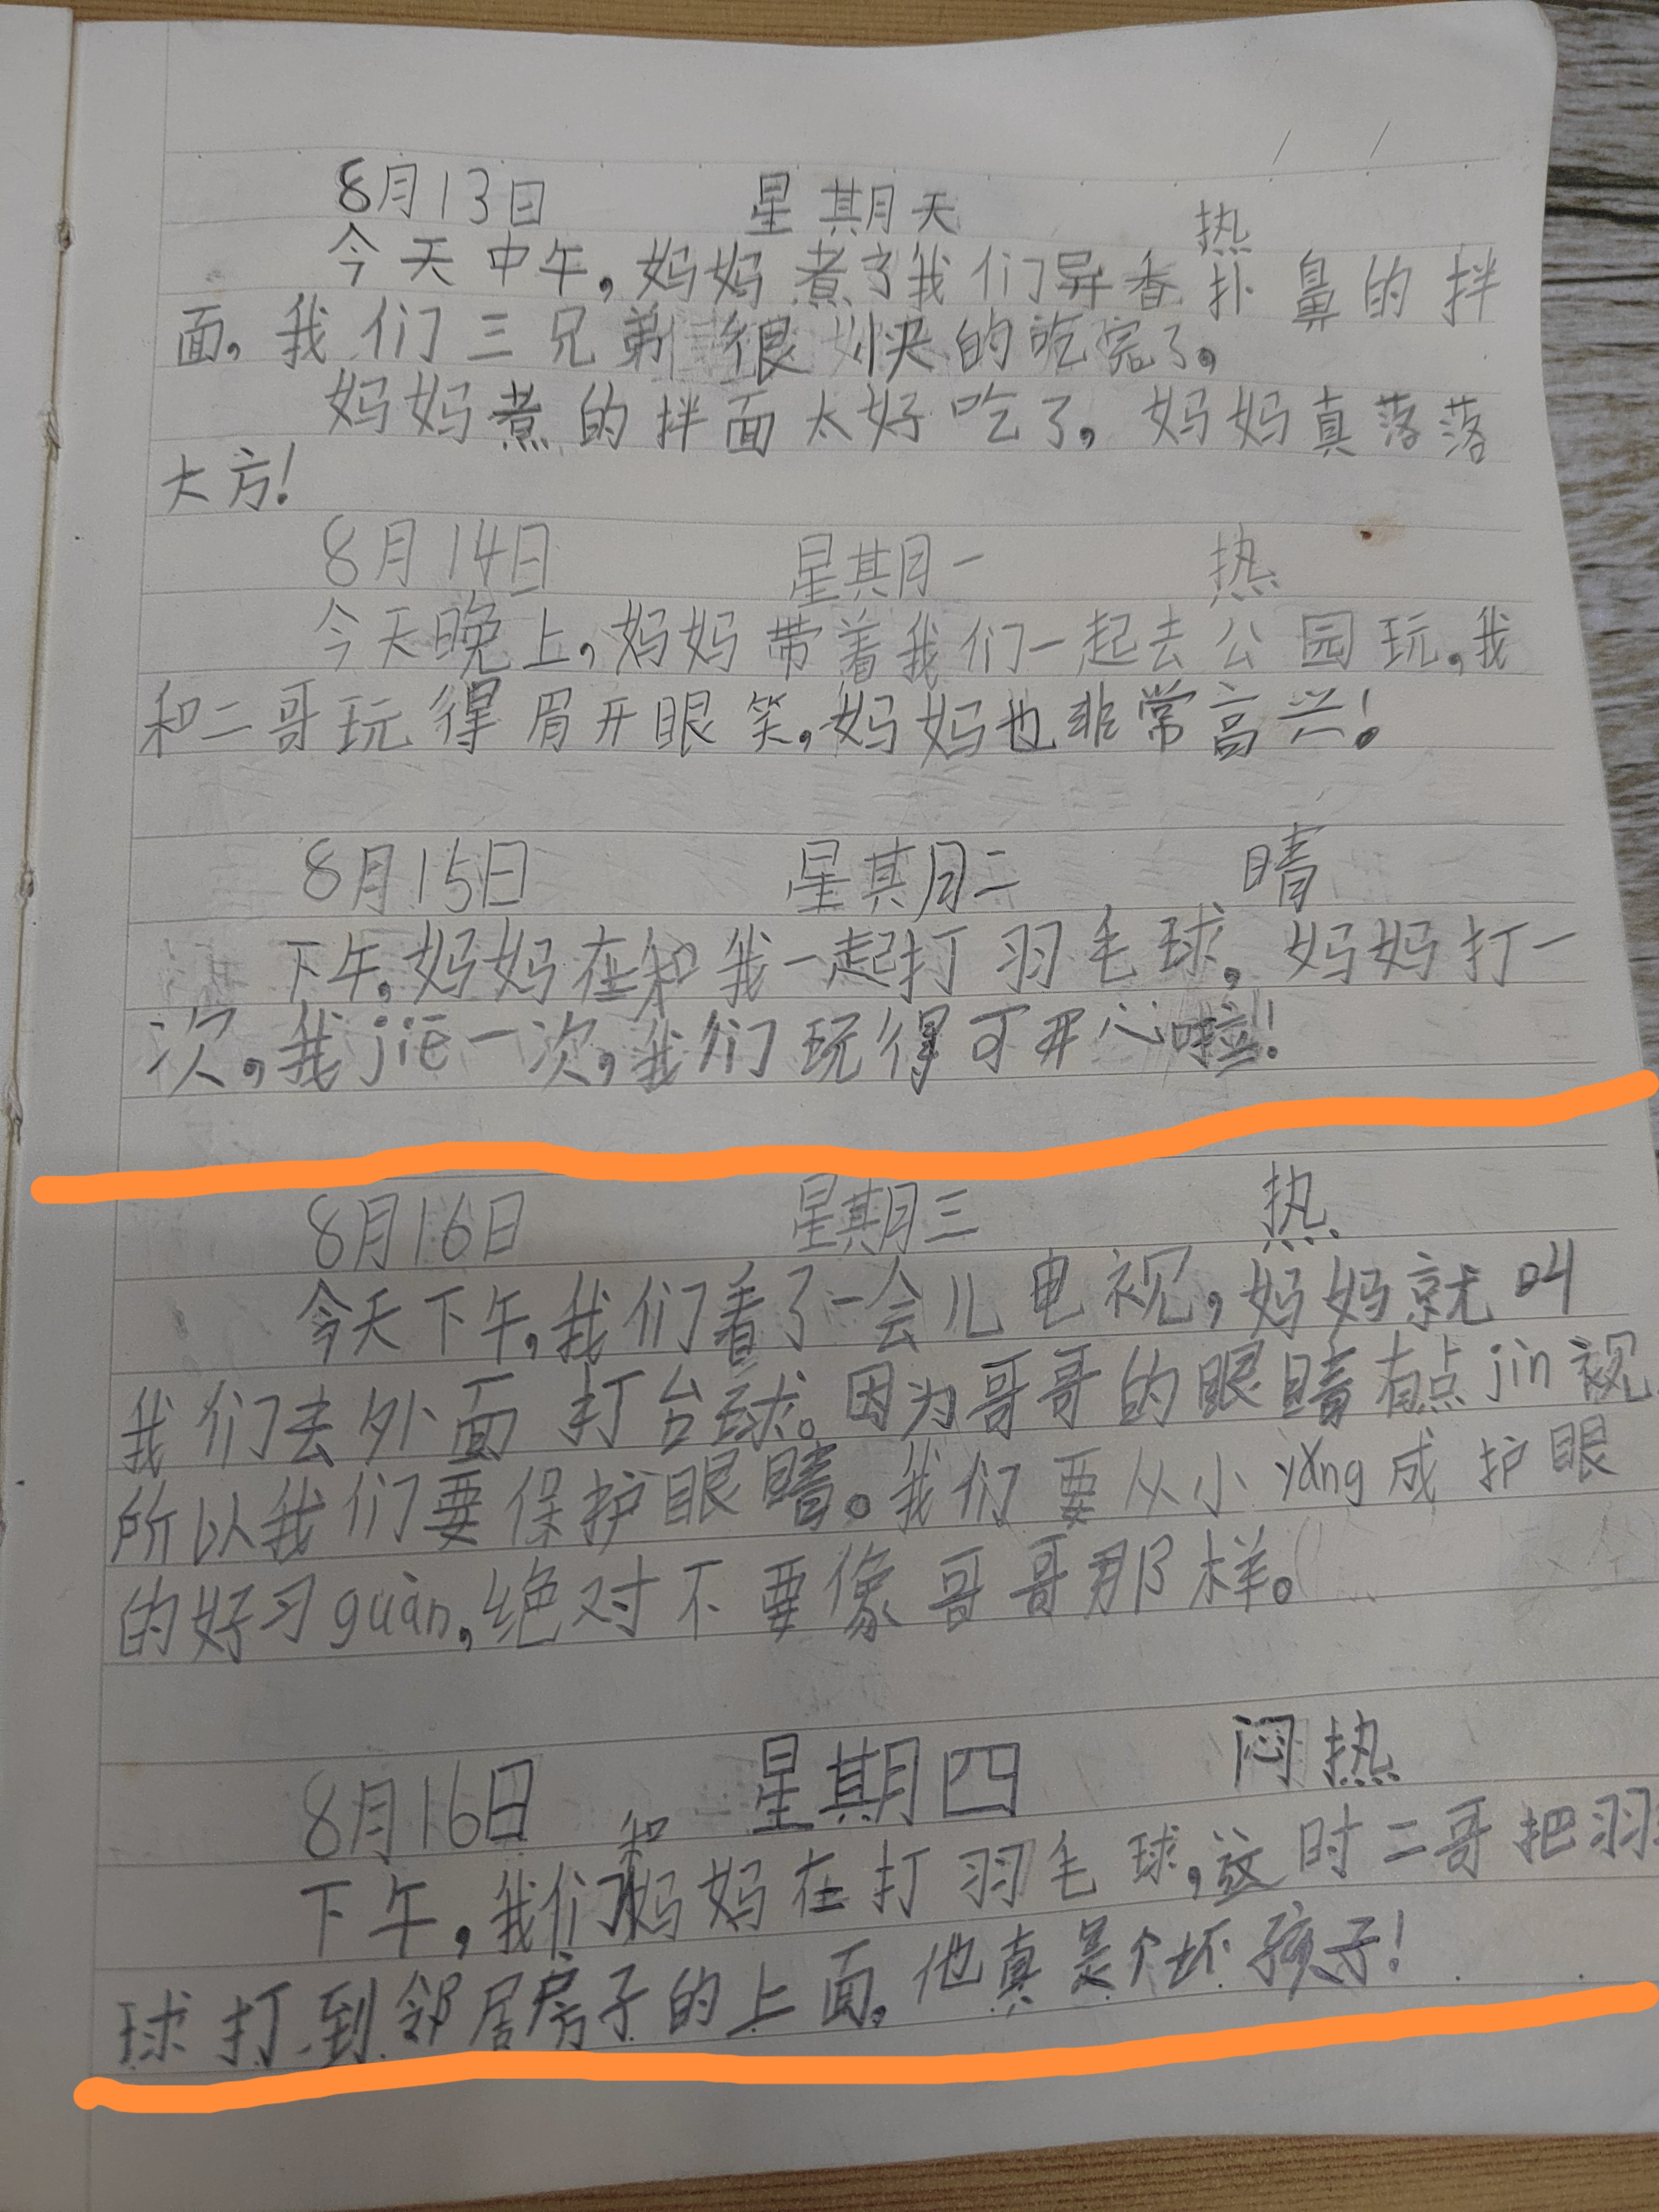 8月13日 星期天 热
今天中午,妈妈煮了我们异香扑鼻的拌
面,我们三兄弟很快的吃完了。
妈妈煮的拌面太好吃了,妈妈真落落
大方!
8月14日 星期一 热
今天晚上,妈妈带着我们一起去公园玩,我
和二哥玩得眉开眼笑,妈妈也非常高兴!
8月15日 星期二 晴
下午,妈妈在和我一起打羽毛球,妈妈打一
次,我jiē一次,我们玩得可开心啦!
8月16日 星期三 热
今天下午,我们看了一会儿电视,妈妈就叫
我们去外面打台球。因为哥哥的眼睛有点jìn视
所以我们要保护眼睛。我们要从小yǎng成护眼
的好习guàn,绝对不要像哥哥那样。
8月16日 星期四 闷热
下午,我们和妈妈在打羽毛球,这时二哥把羽
球打到邻居房子的上面,他真是个坏孩子!